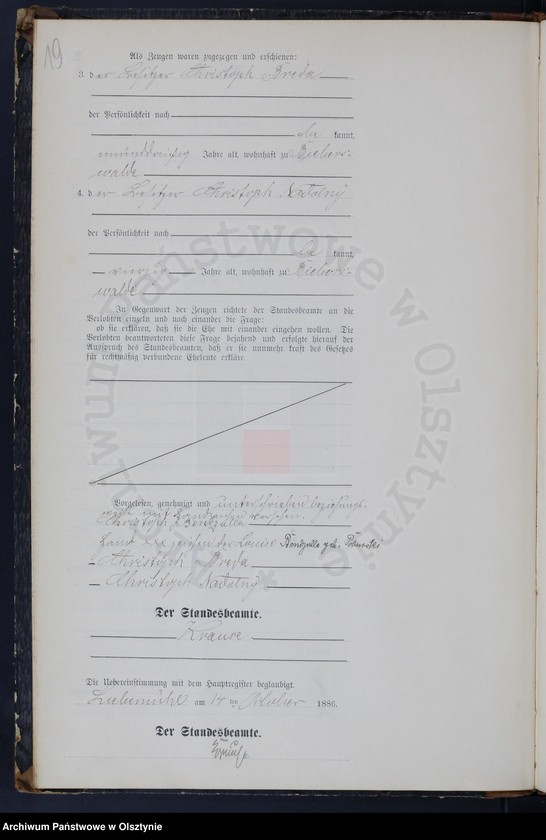 19
Als Zeugen waren zugezogen und erschienen:
3. der Besitzer Christoph Breda
der Persönlichkeit nach
be kannt,
neununddreißig Jahre alt, wohnhaft zu Biebers-
walde
4. der Besitzer Christoph Nadolny
der Persönlichkeit nach
be kannt,
vierzig Jahre alt, wohnhaft zu Biebers-
walde
In Gegenwart der Zeugen richtete der Standesbeamte an die
Verlobten einzeln und nach einander die Frage:
ob sie erklären, daß sie die Ehe mit einander eingehen wollen. Die
Verlobten beantworteten diese Frage bejahend und erfolgte hierauf der
Ausspruch des Standesbeamten, daß er sie nunmehr kraft des Gesetzes
für rechtmäßig verbundene Eheleute erkläre.
Vorgelesen, genehmigt und unterschrieben beziehungs-
weise mit Handzeichen versehen.
Christoph Bendzulla
Hand xxx zeichen der Louise Bendzulla geb.
Christoph Breda
Christoph Nadolny
Der Standesbeamte.
Krause
Die Uebereinstimmung mit dem Hauptregister beglaubigt.
Liebemühl am 14 ten Oktober 1886.
Der Standesbeamte.
Archiwum Państwowe w Olsztynie
Archiwum Państwowe w Olsztynie